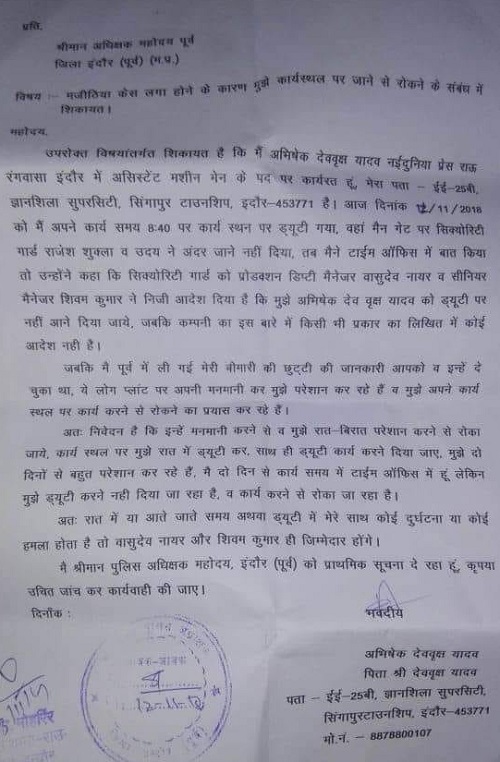 प्रति,
श्रीमान अधिक्षक महोदय पूर्व
जिला इंदौर (पूर्व) (म.प्र.)
विषय :– मजीठिया केस लगा होने के कारण मुझे कार्यस्थल पर जाने से रोकने के संबंध में
शिकायत।
महोदय,
उपरोक्त विषयांतर्गत शिकायत है कि मैं अभिषेक देववृक्ष यादव नईदुनिया प्रेस राऊ
रंगवासा इंदौर में असिस्टेंट मशीन मेन के पद पर कार्यरत हूं, मेरा पता – ईई-25बी,
ज्ञानशिला सुपरसिटी, सिंगापुर टाउनशिप, इंदौर-453771 है। आज दिनांक 12/11/2018
को मैं अपने कार्य समय 8:40 पर कार्य स्थन पर ड्यूटी गया, वहां मैन गेट पर सिक्योरिटी
गार्ड राजेश शुक्ला व उदय ने अंदर जाने नहीं दिया, तब मैने टाईम ऑफिस में बात किया
तो उन्होंने कहा कि सिक्योरिटी गार्ड को प्रोडक्शन डिप्टी मैनेजर वासुदेव नायर व सीनियर
मैनेजर शिवम कुमार ने निजी आदेश दिया है कि मुझे अभिषेक देव वृक्ष यादव को ड्यूटी पर
नहीं आने दिया जाये, जबकि कम्पनी का इस बारे में किसी भी प्रकार का लिखित में कोई
आदेश नही है।
जबकि मै पूर्व में ली गई मेरी बीमारी की छुट्टी की जानकारी आपको व इन्हें दे
चुका था, ये लोग प्लांट पर अपनी मनमानी कर मुझे परेशान कर रहे हैं व मुझे अपने कार्य
स्थल पर कार्य करने से रोकने का प्रयास कर रहे हैं।
अतः निवेदन है कि इन्हें मनमानी करने से व मुझे रात-बिरात परेशान करने से रोका
जाये, कार्य स्थल पर मुझे रात में ड्यूटी कर, साथ ही ड्यूटी कार्य करने दिया जाए, मुझे दो
दिनों से बहुत परेशान कर रहे हैं, मै दो दिन से कार्य समय में टाईम ऑफिस में हूं लेकिन
मुझे ड्यूटी करने नही दिया जा रहा है, व कार्य करने से रोका जा रहा है।
अतः रात में या आते जाते समय अथवा ड्यूटी में मेरे साथ कोई दुर्घटना या कोई
हमला होता है तो वासुदेव नायर और शिवम कुमार ही जिम्मेदार होंगे।
मै श्रीमान पुलिस अधिक्षक महोदय, इंदौर (पूर्व) को प्राथमिक सूचना दे रहा हूं, कृपया
उचित जांच कर कार्यवाही की जाए।
दिनांक :
भवदीय
अभिषेक देववृक्ष यादव
पिता श्री देववृक्ष यादव
पता – ईई-25बी, ज्ञानशिला सुपरसिटी,
सिंगापुरटाउनशिप, इंदौर-453771
मो.नं. – 8878800107
12-11-18